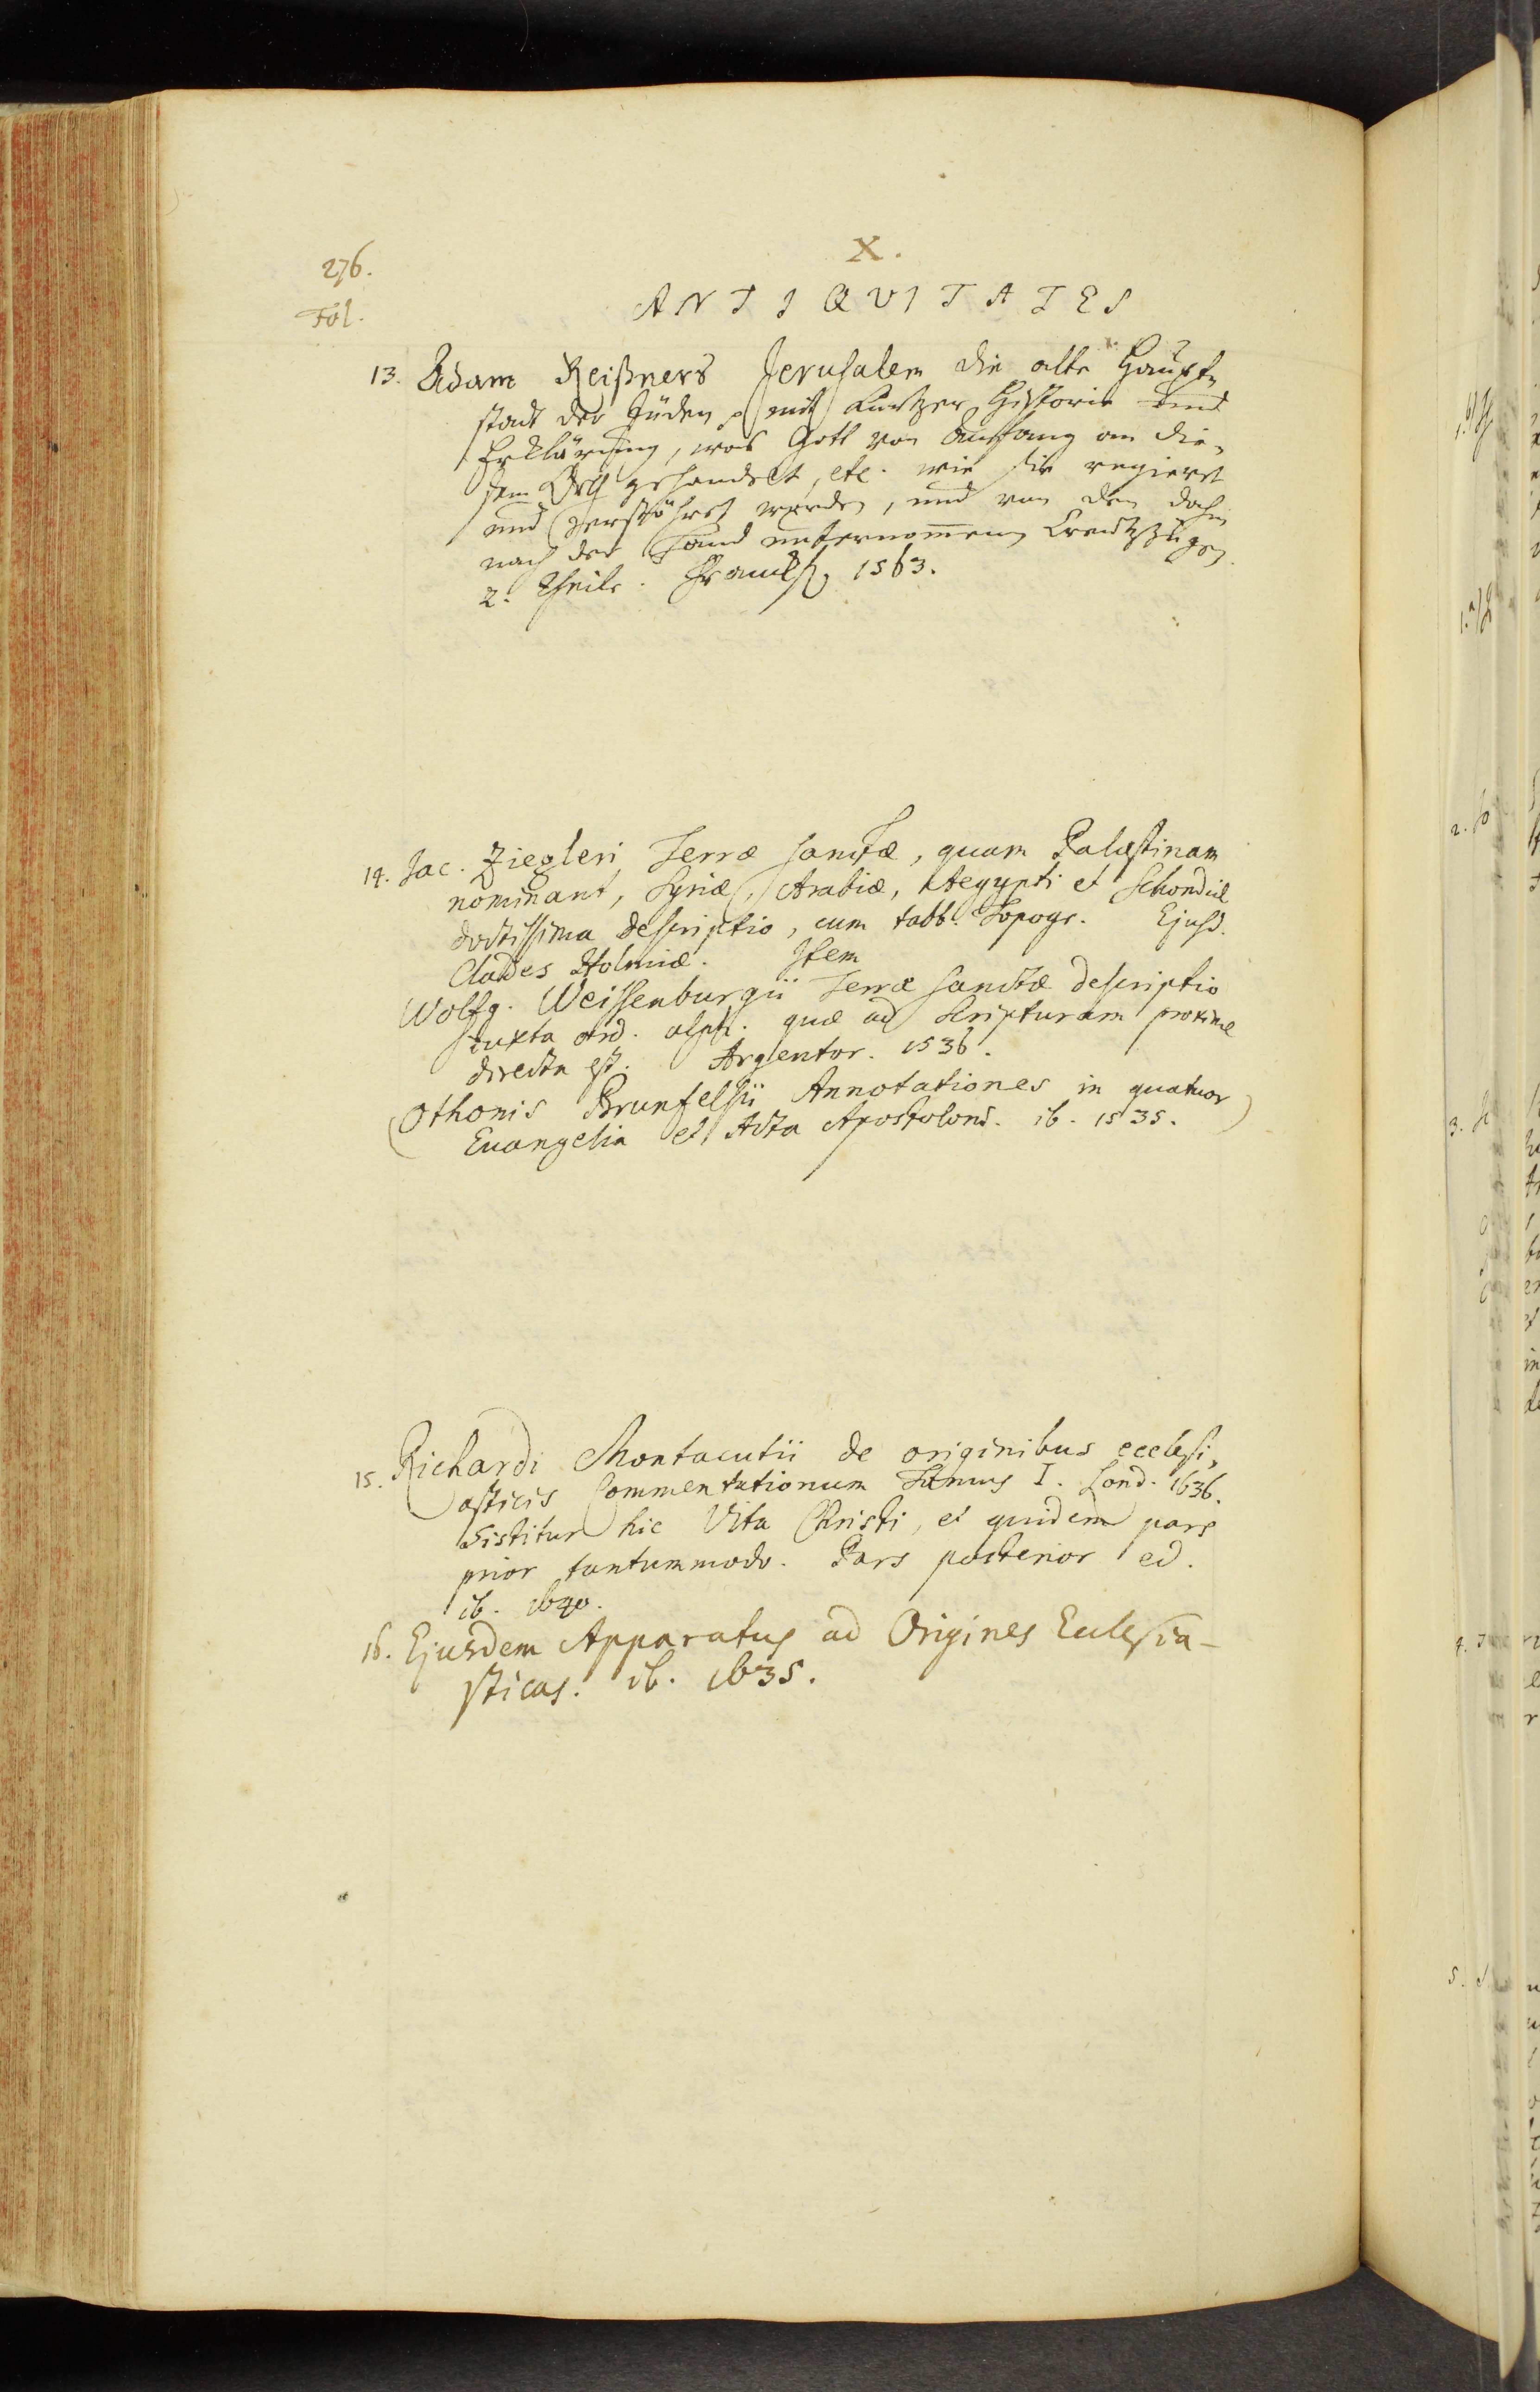 276.
X.
Fol.
ANTIQVITATES
13. Adam Reißners Jerusalem die alte Haupt-
stadt der Jüden, mit kurtzer Historie und
Erklärung, was Gott von Anfang an die-
sem Ort gehandelt, etc. wie sie regieret
und zerstöhret worden, und von den dahin
nach der Hand unternom̄enen Creutzzügen.
2. Theile. Franckf. 1563.
14. Jac. Ziegleri Terræ sanctæ, quam Palæstinam
nominant, Syriæ, Arabiæ, Aegypti et Schondiæ
doctissima descriptio, cum tabb. Topogr. Ejusd.
Clades Holmiæ. Item
Wolfg. Weissenburgii Terræ sanctæ descriptio
iuxta ord. alph. quæ ad Scripturam proxime
directa est. Argentor. 1536.
(Othonis Brunfelsii Annotationes in quatuor
Euangelia et Acta Apostolor. ib. 1535.)
15. Richardi Montacutii de originibus ecclesi-
asticis Commentationum Tomus I. Lond. 1636.
Sistitur hic Vita Christi, et quidem pars
prior tantummodo. Pars posterior ed.
ib. 1640.
16. Ejusdem Apparatus ad Origines Ecclesia-
sticas. ib. 1635.